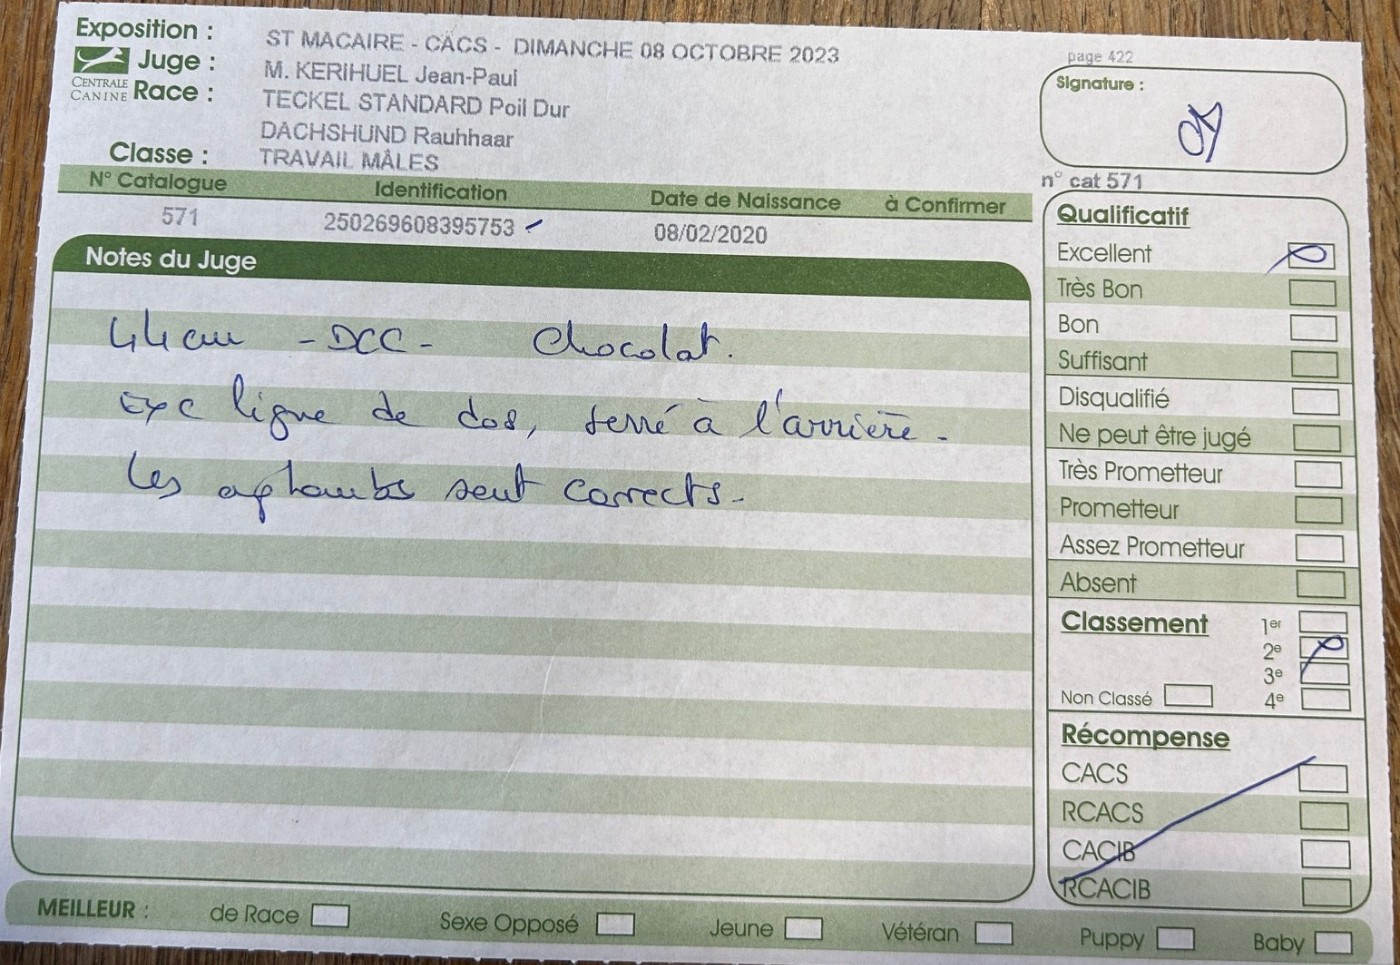 Exposition : ST MACAIRE - CACS - DIMANCHE 08 OCTOBRE 2023
CENTRALE CANINE
Juge : M. KERIHUEL Jean-Paul
Race : TECKEL STANDARD Poil Dur
DACHSHUND Rauhhaar
Classe : TRAVAIL MÂLES
page 422
Signature :
n° cat 571
N° Catalogue Identification Date de Naissance à Confirmer
571 250269608395753 08/02/2020
Notes du Juge
44cm - DCC - Chocolat.
Exc ligne de dos, serré à l'arrière -
Les aplombs sont corrects -
Qualificatif
Excellent
Très Bon
Bon
Suffisant
Disqualifié
Ne peut être jugé
Très Prometteur
Prometteur
Assez Prometteur
Absent
Classement 1er
2e
3e
Non Classé 4e
Récompense
CACS
RCACS
CACIB
RCACIB
MEILLEUR : de Race Sexe Opposé Jeune Vétéran Puppy Baby